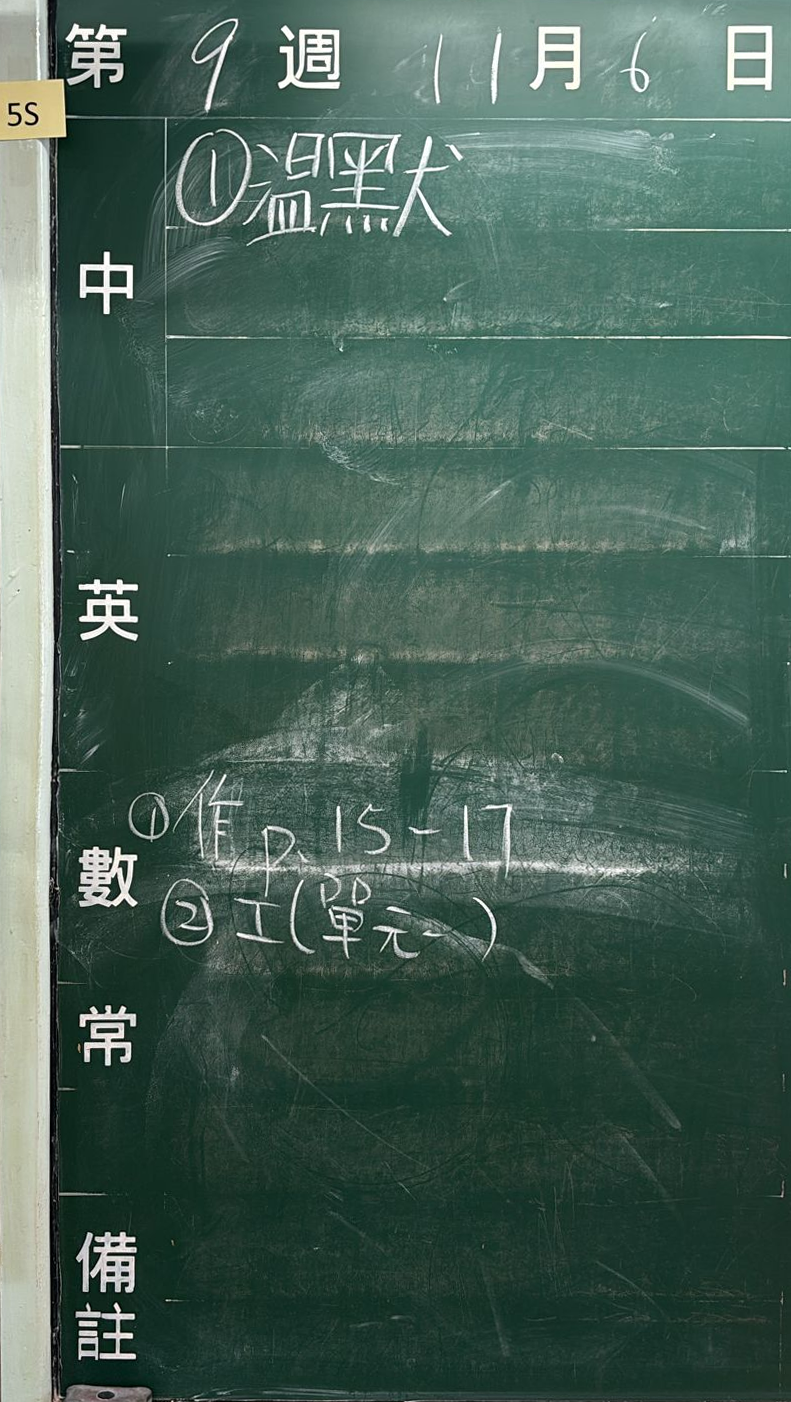 第 9 週 11 月 6 日
5S
中
①溫默
英
數
①作 p. 15-17
②工(單元一)
常
備註